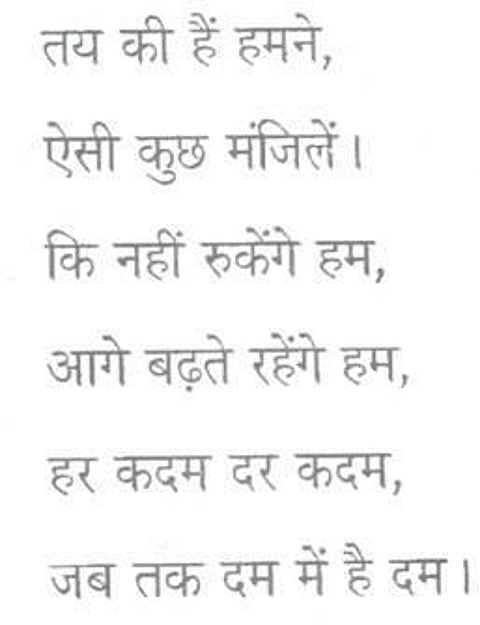 तय की हैं हमने,
ऐसी कुछ मंजिलें।
कि नहीं रुकेंगे हम,
आगे बढ़ते रहेंगे हम,
हर कदम दर कदम,
जब तक दम में है दम।